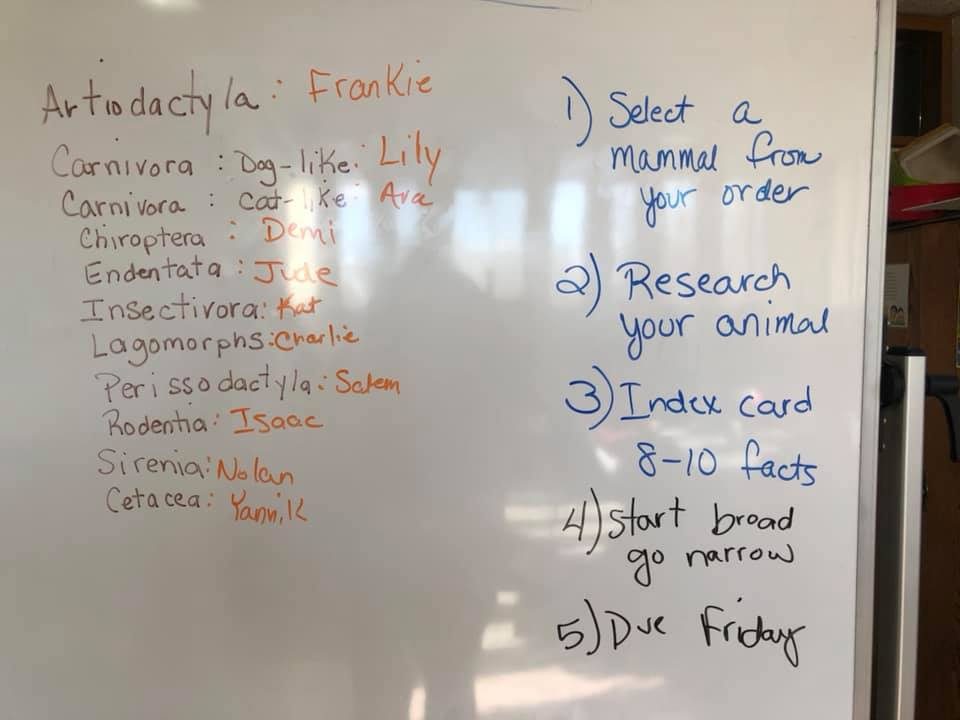 Artiodactyla: Frankie
Carnivora : Dog-like: Lily
Carnivora : Cat-like: Ava
Chiroptera : Demi
Endentata: Jude
Insectivora: Kat
Lagomorphs: Charlie
Perissodactyla: Salem
Rodentia: Isaac
Sirenia: Nolan
Cetacea: Yannik
1) Select a
mammal from
your order
2) Research
your animal
3) Index card
8-10 facts
4) Start broad
go narrow
5) Due Friday